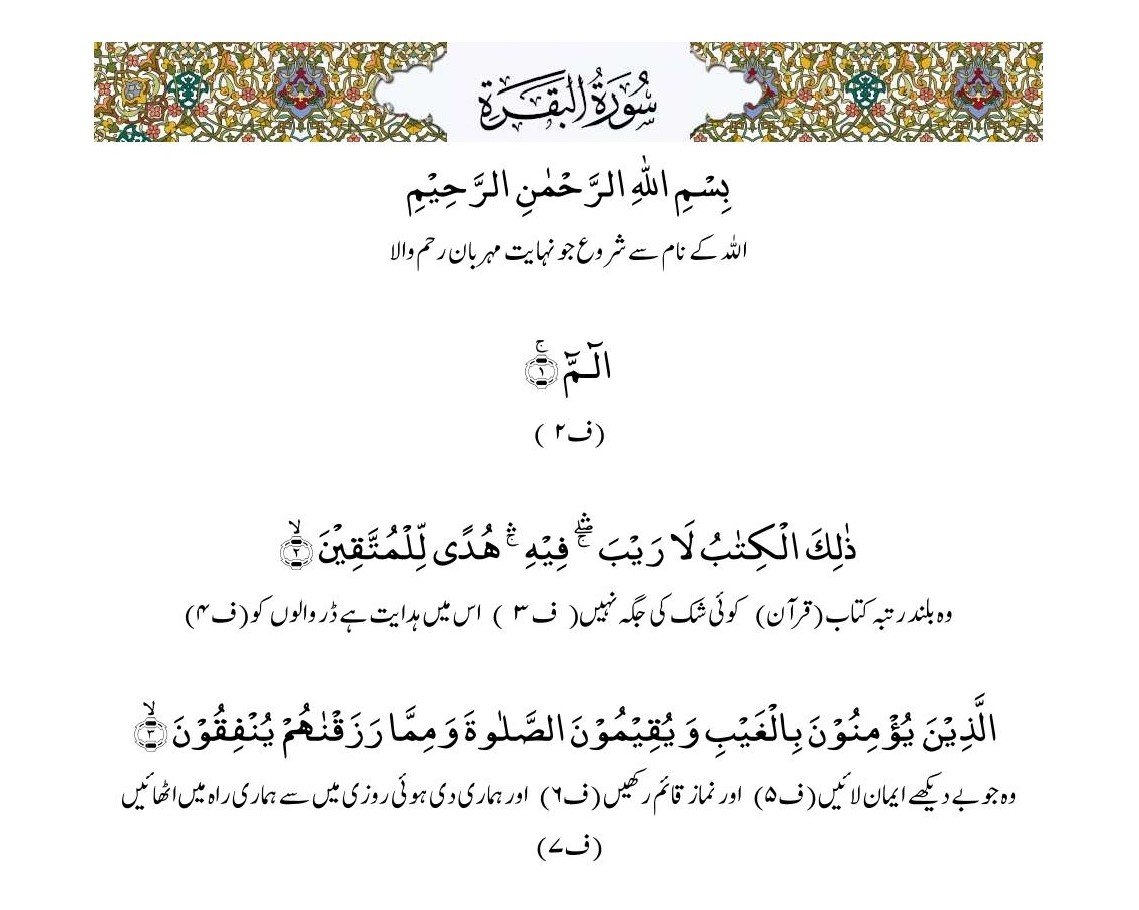 سُوْرَةُ الْبَقَرَةِ
بِسْمِ اللهِ الرَّحْمٰنِ الرَّحِيْمِ
اللہ کے نام سے شروع جو نہایت مہربان رحم والا
الٓـمّٓ ۚ﴿۱﴾
(ف۲)
ذٰلِكَ الْكِتٰبُ لَا رَيْبَ ۛۖۚ فِيْهِ ۛۚ هُدًى لِّلْمُتَّقِيْنَ ۙ﴿۲﴾
وہ بلند رتبہ کتاب (قرآن) کوئی شک کی جگہ نہیں( ف۳ ) اس میں ہدایت ہے ڈر والوں کو (ف۴)
الَّذِيْنَ يُؤْمِنُوْنَ بِالْغَيْبِ وَ يُقِيْمُوْنَ الصَّلٰوةَ وَ مِمَّا رَزَقْنٰهُمْ يُنْفِقُوْنَ ۙ﴿۳﴾
وہ جو بے دیکھے ایمان لائیں (ف۵) اور نماز قائم رکھیں (ف۶) اور ہماری دی ہوئی روزی میں سے ہماری راہ میں اٹھائیں
(ف۷)